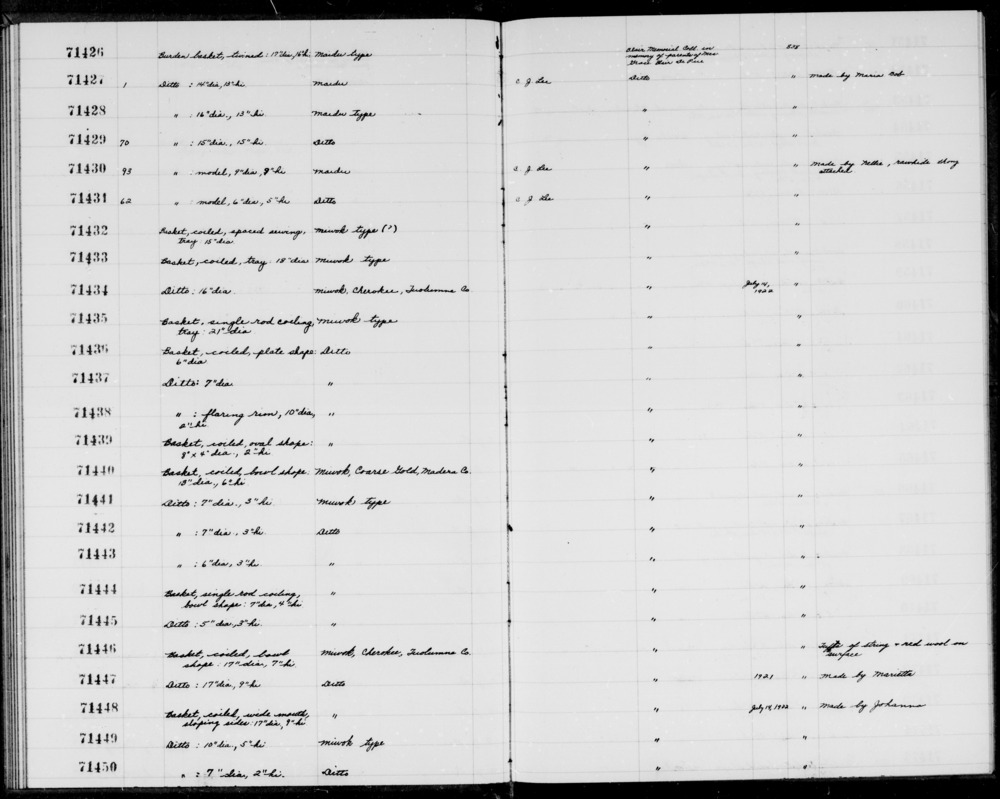 71426 Burden basket, twined: 17" dia, 16" hi Maidu type Blair Memorial Coll. in 528
memory of parents of Mrs
71427 1 Ditto : 14" dia, 13" hi. Maidu C. J. Lee Ditto " made by Maria Bob
71428 " : 16" dia., 13" hi. Maidu type " "
71429 70 " : 15" dia., 15" hi. Ditto " "
71430 93 " : model, 9" dia, 8" hi Maidu C. J. Lee " " Made by Nellie, rawhide thong
attached
71431 62 " : model, 6" dia, 5" hi Ditto C. J. Lee " "
71432 Basket, coiled, spaced sewing, Miwok type (?) " "
tray 15" dia
71433 Basket, coiled, tray: 18" dia Miwok type " "
71434 Ditto: 16" dia Miwok, Cherokee, Tuolumne Co " July 14, "
1922
71435 Basket, single rod coiling, Miwok type " "
tray: 21" dia
71436 Basket, coiled, plate shape: Ditto " "
6" dia
71437 Ditto: 7" dia " " "
71438 " : flaring rim, 10" dia, " " "
2" hi
71439 Basket, coiled, oval shape: " " "
8" x 4" dia., 2" hi
71440 Basket, coiled, bowl shape: Miwok, Coarse Gold, Madera Co. " "
13" dia., 6" hi
71441 Ditto: 7" dia., 3" hi. Miwok type " "
71442 " : 7" dia., 3" hi Ditto " "
71443 " : 6" dia, 3" hi " " "
71444 Basket, single rod coiling, " " "
bowl shape: 7" dia, 4" hi
71445 Ditto: 5" dia, 3" hi. " " "
71446 Basket, coiled, bowl Miwok, Cherokee, Tuolumne Co. " " Tufts of string & red wool on
shape: 17" dia, 7" hi surface
71447 Ditto: 17" dia, 9" hi Ditto " 1921 " Made by Marietta
71448 Basket, coiled, wide mouth, " " July 14, 1922 " Made by Johanna
sloping sides: 17" dia, 9" hi
71449 Ditto: 10" dia., 5" hi Miwok type " "
71450 " : 7" dia, 2" hi. Ditto " "